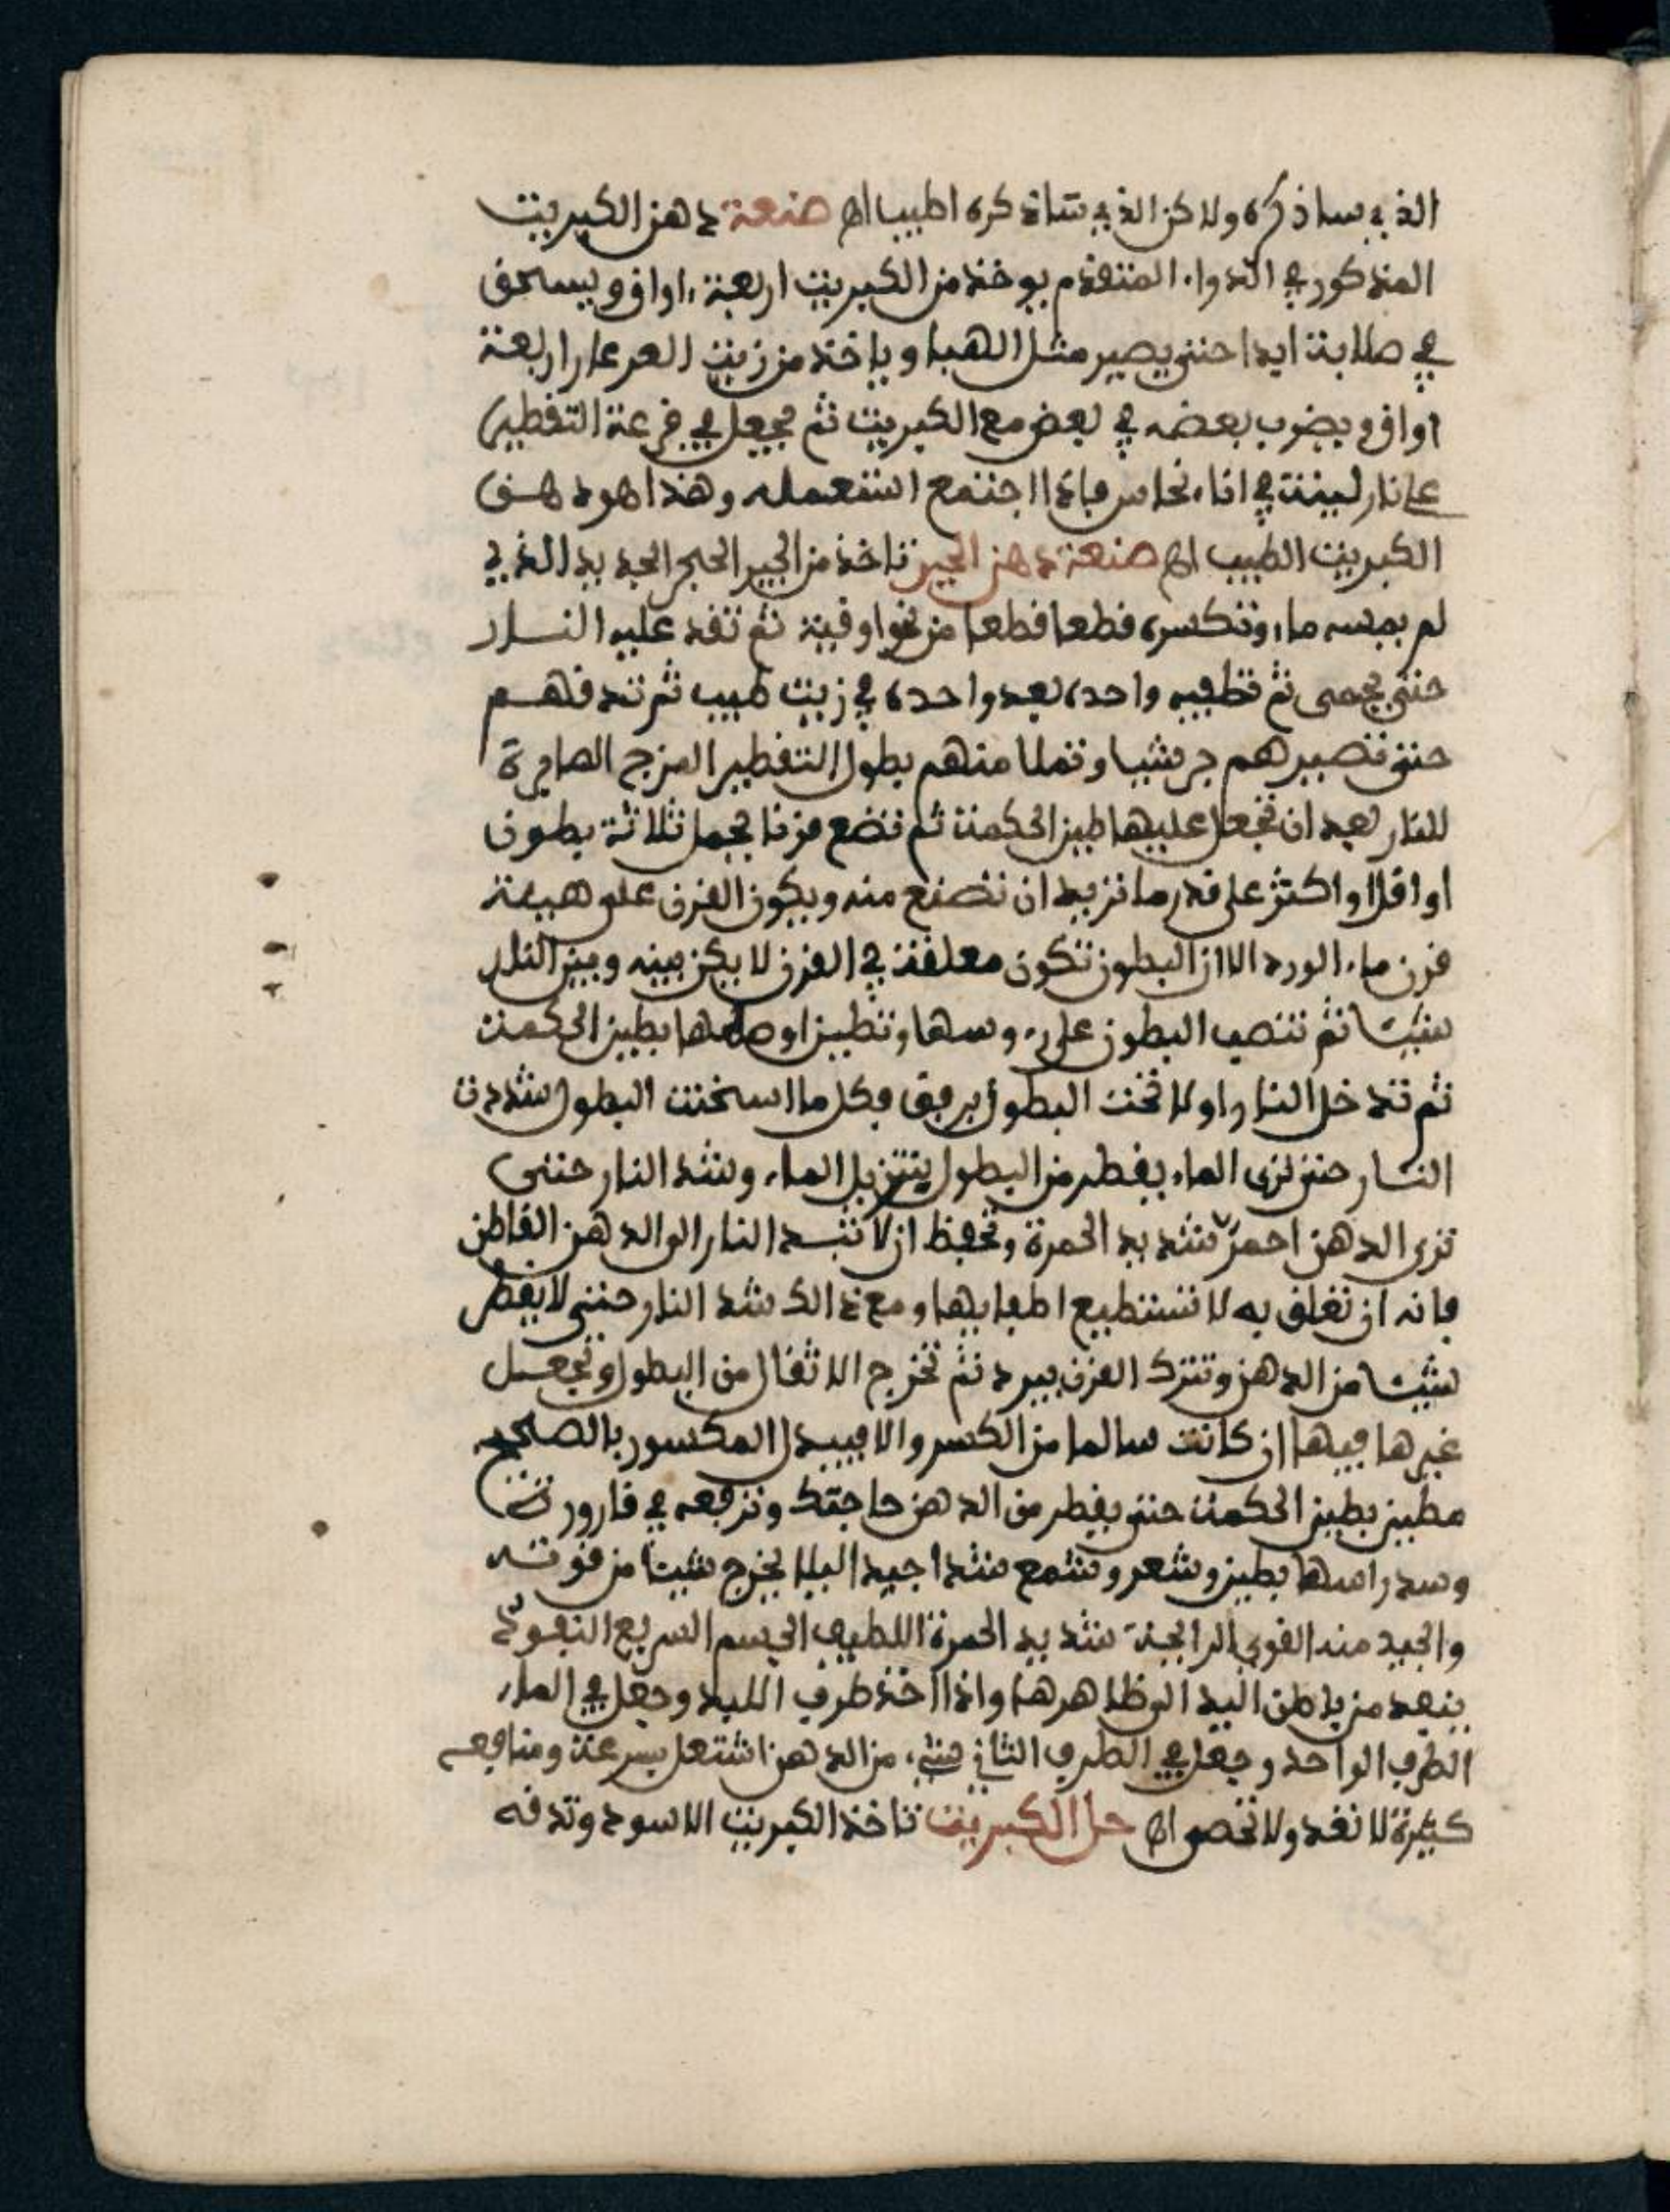 الذي ساذكره ولاكن الذي ساذكره اطيب اه صنعة دهن الكبريت
المذكور في الدواء المتقدم يوخذ من الكبريت اربعة اواق ويسحق
في صلابة ايدا حتى يصير مثل الهبا وياخذ من زيت العرعار اربعة
اواق ويضرب بعضه في بعض مع الكبريت ثم يجعل في قرعة التقطير
على نار لينة في اناء نحاس فاذا اجتمع استعمله وهذا هو دهن
الكبريت الطيب اه صنعة دهن الجير تاخذ من الجير الحجر الجديد الذي
لم يمسه ماء وتكسره قطعا قطعا من نحو اوقية ثم تقد عليه النار
حتى يحمى ثم تطفيه واحدة بعد واحدة في زيت طيب ثم تدقهم
حتى تصيرهم جريشا وتملا منهم بطول التقطير المزج الصابرة
للنار بعد ان تجعل عليها طين الحكمة ثم تضع فرنا يحمل ثلاثة بطون
او اقل او اكثر على قدر ما تريد ان تصنع منه ويكون الفرن على هيئة
فرن ماء الورد الا ان البطون تكون معلقة في الفرن لا يكن بينه وبين النار
شيئا ثم تنصب البطون على روسها وتطين اوصلها بطين الحكمة
ثم تدخل النار اولا تحت البطول برفق فكل ما اسخنت البطول شددت
النار حتى ترى الماء يقطر من البطول يتنزيل الماء وشد النار حتى
ترى الدهن احمر شديد الحمرة وتحفظ ان لا تسد النار الى الدهن القاطن
فانه ان تعلق به لا تستطيع اطفايها ومع ذالك شد النار حتى لا يقطر
شيئا من الدهن وتترك الفرن يبرد ثم تخرج الاثفال من البطول وتجعل
غيرها فيها ان كانت سالما من الكسر والا فيبدل المكسور بالصحيح
مطين بطين الحكمة حتى يقطر من الدهن حاجتك وترفعه في قارورة
وسد راسها بطين وشعر وشمع شدا جيدا ليلا يخرج شيئا من قوته
والجيد منه القوي الرايحة شديد الحمرة اللطيف الجسم السريع النفوذ
ينفد من باطن اليد الى ظاهرها واذا اخذ طرف اللبد وجعل في الماء
الطرف الواحد وجعل في الطرف الثاني شيء من الدهن اشتعل بسرعة ومنافعه
كثيرة لا تعد ولا تحصى اه حل الكبريت تاخذ الكبريت الاسود وتدقه